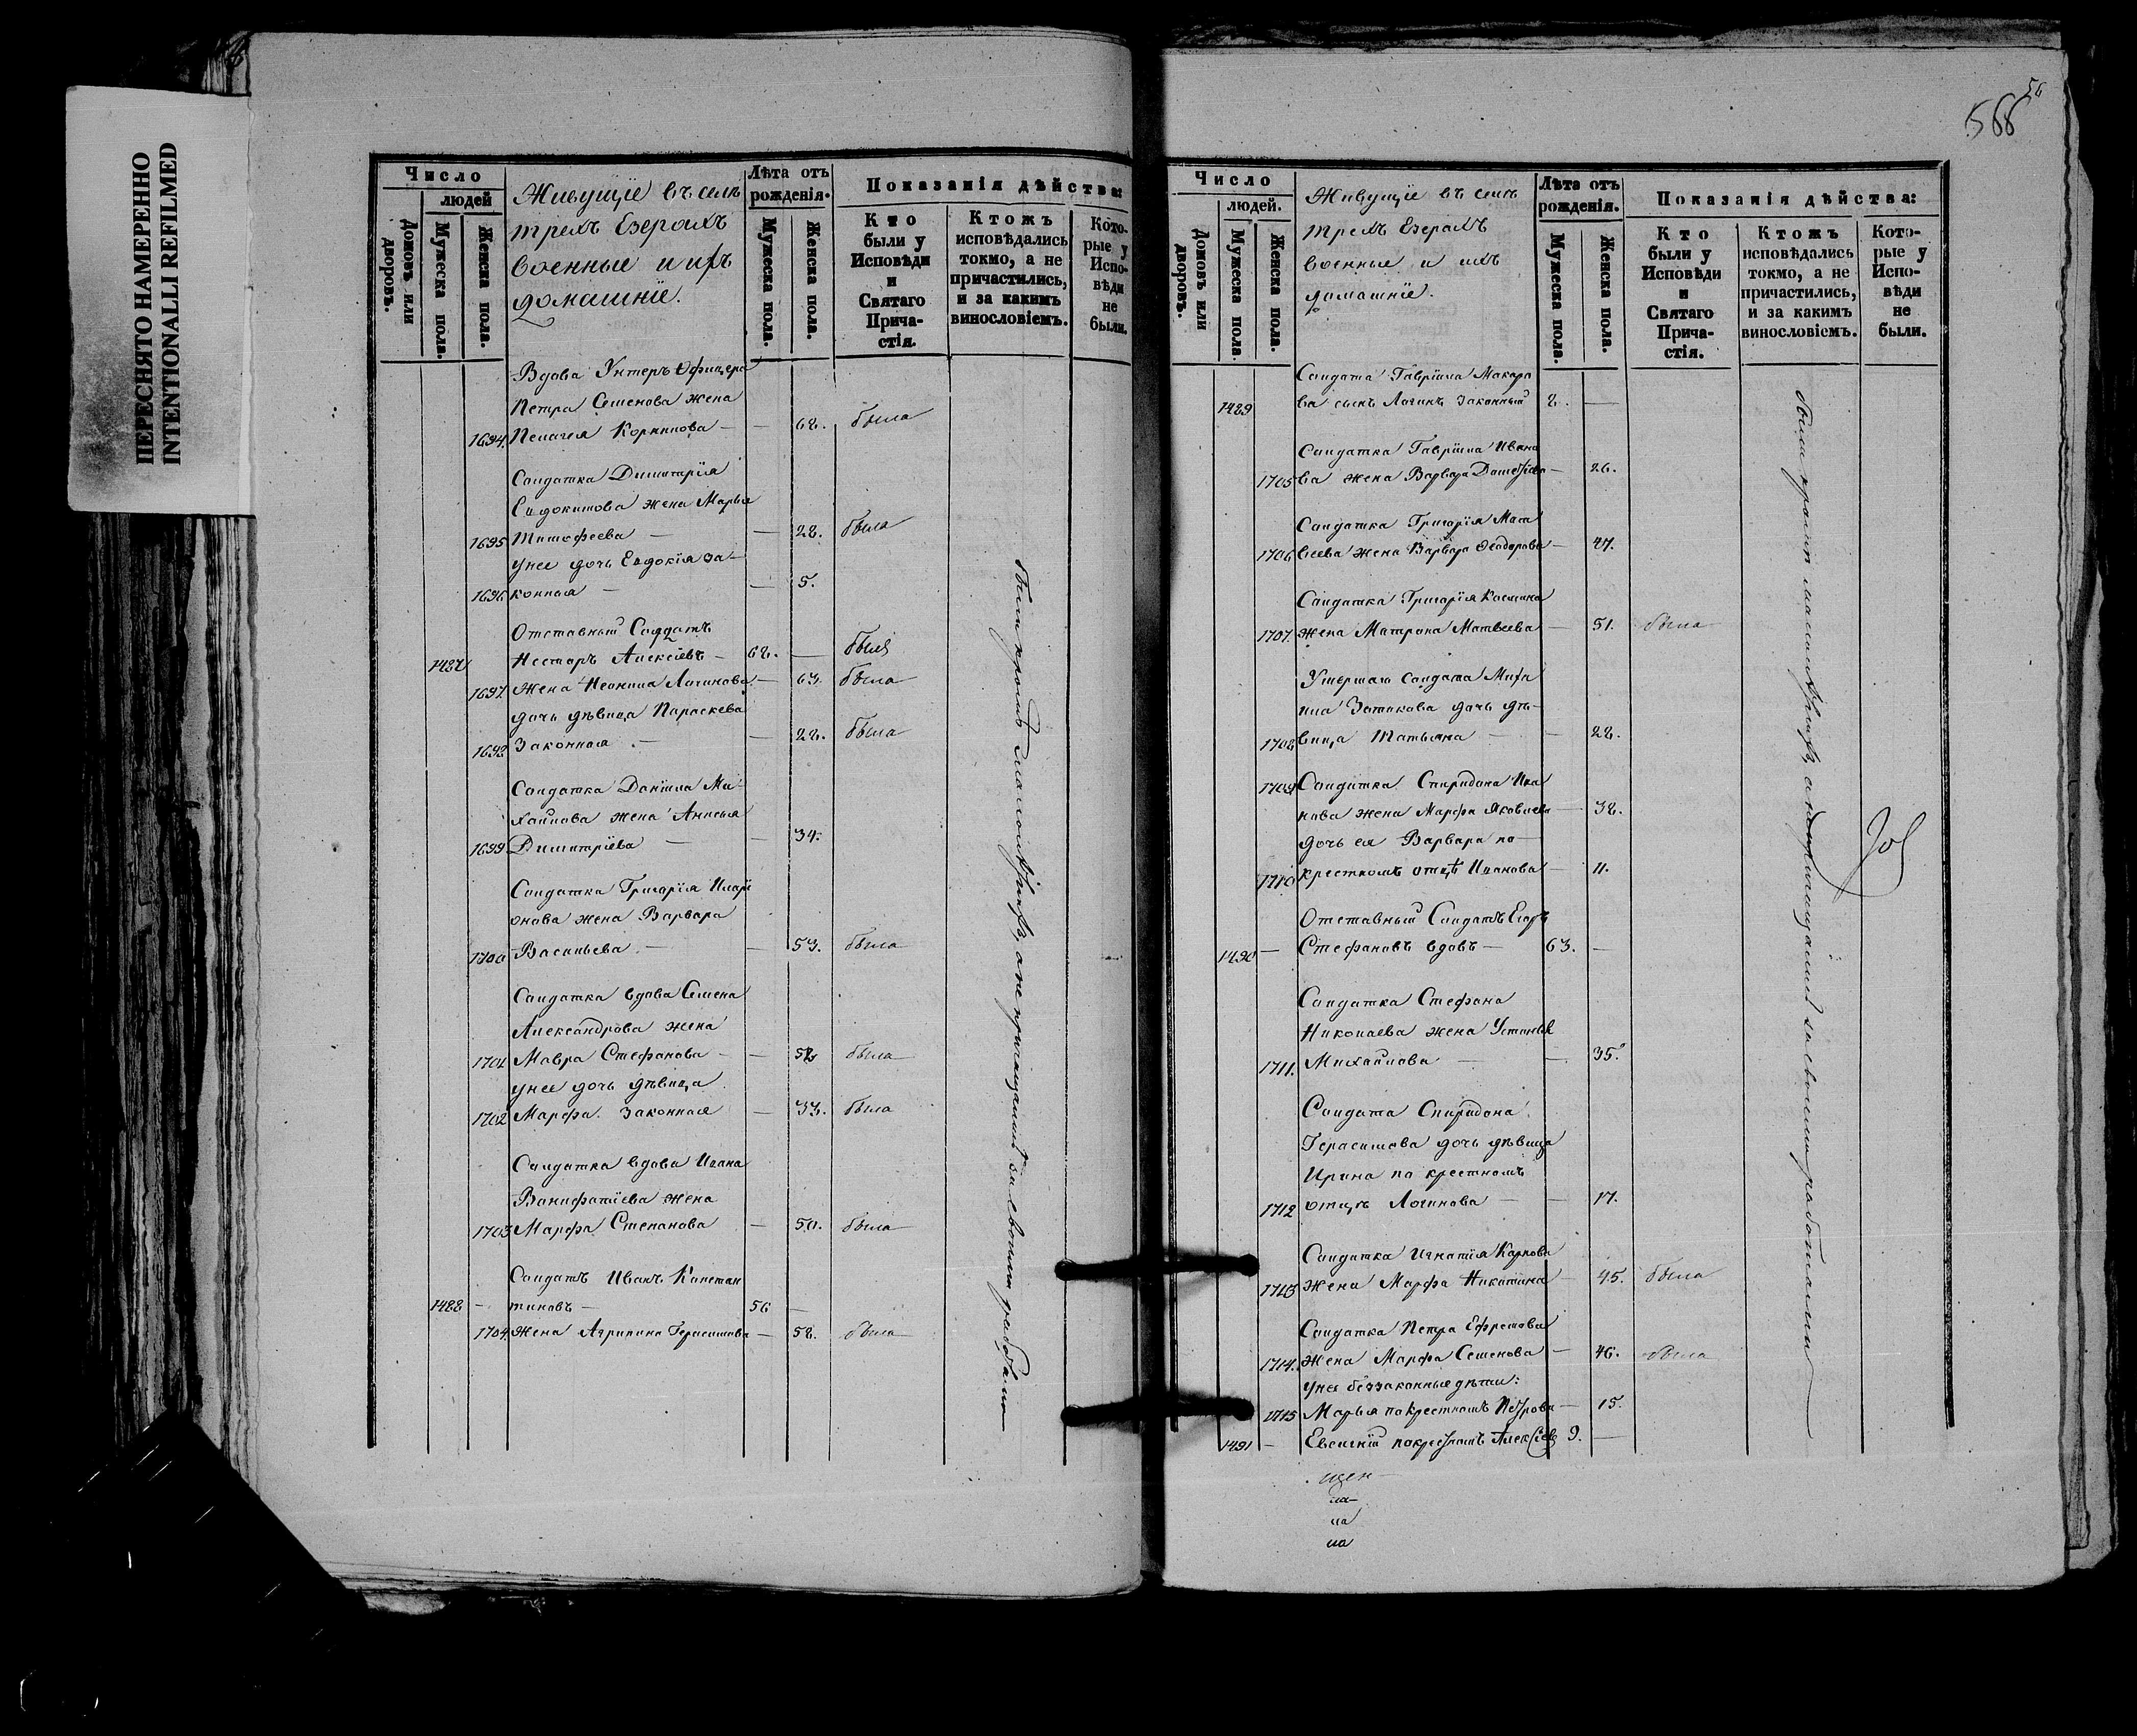 ПЕРЕСНЯТО НАМЕРЕННО
INTENTIONALLI REFILMED
Число
людей
Домовъ или дворовъ.
Мужеска пола.
Женска пола.
Живущіе въ селѣ
трехъ Озерахъ
военные и ихъ
домашніе.
Лѣта отъ рожденія.
Мужеска пола.
Женска пола.
Показанія дѣйства:
Кто были у Исповѣди и Святаго Причастія.
Ктожъ исповѣдались токмо, а не причастились, и за какимъ винословіемъ.
Которые у Исповѣди не были.
Вдова Унтеръ Офицера
Петра Семенова жена
1694. Пелагея Корнилова — — 62. была
Солдатка Димитрія
Евдокимова жена Марья
1695 Тимофеева — — 28. была
у нее дочь Евдокія за-
1696 конная — — 5.
Отставный Солдатъ
1487 Несторъ Алексѣевъ — 68. — былъ
1697. Жена Неонила Логинова — 63. была
дочь дѣвица Параскева
1698 Законная — — 28. была
Солдатка Даніила Ми-
хайлова жена Анисья
1699 Димитріева — — 34.
Солдатка Григорія Илари
онова жена Варвара
1700 Васильева — — 53. была
Солдатка вдова Семена
Александрова жена
1701 Мавра Стефанова — — 58 была
у нее дочь дѣвица
1702 Марфа Законная — 33. была
Солдатка вдова Ивана
Вонифатіева жена
1703 Марфа Степанова — 50. была
Солдатъ Иванъ Констан
1488 — тиновъ — 56 —
1704. Жена Агрипина Герасимова — 58. была
были кромѣ малолѣтнихъ, а не причащались за своими работами
566
Число
людей.
Домовъ или дворовъ.
Мужеска пола.
Женска пола.
Живущіе въ селѣ
трехъ Озерахъ
военные и ихъ
домашніе.
Лѣта отъ рожденія.
Мужеска пола.
Женска пола.
Показанія дѣйства:
Кто были у Исповѣди и Святаго Причастія.
Ктожъ исповѣдались токмо, а не причастились, и за какимъ винословіемъ.
Которые у Исповѣди не были.
Солдата Гавріила Макаро
1489 ва сынъ Логинъ Законный 8. —
Солдатка Гавріила Ивано
1705 ва жена Варвара — 26.
Солдатка Григорія Мат
1706 веева жена Варвара Феодорова — 47.
Солдатка Григорія Косьмина
1707. жена Матрона Матвеева — 51. была
Умершаго солдата Миха
ила дочь дѣ-
1708 вица Татьяна — — 28.
1709 Солдатка Спиридона Ива
нова жена Марфа Яковлева — 38.
дочь ея Варвара по
1710 крестномъ отцѣ Иванова — 11.
Отставный Солдатъ Егоръ
1490 — Стефановъ вдовъ — 63. —
Солдатка Стефана
Николаева жена Устинья
1711. Михайлова — — 35.
Солдата Спиридона
Герасимова дочь дѣвица
Ирина по крестномъ
1712 отцѣ Логинова — — 17.
Солдатка Игнатія Карпова
1713 жена Марфа Никитина — 45. была
Солдатка Петра Ефремова
1714. жена Марфа Семенова — 46. была
у нее беззаконные дѣти:
1715 Марья по крестномъ Петрова — 15.
1491 — Евгеній по крестномъ Алексѣевъ 9. —
были кромѣ малолѣтнихъ, а не причащались за своими работами